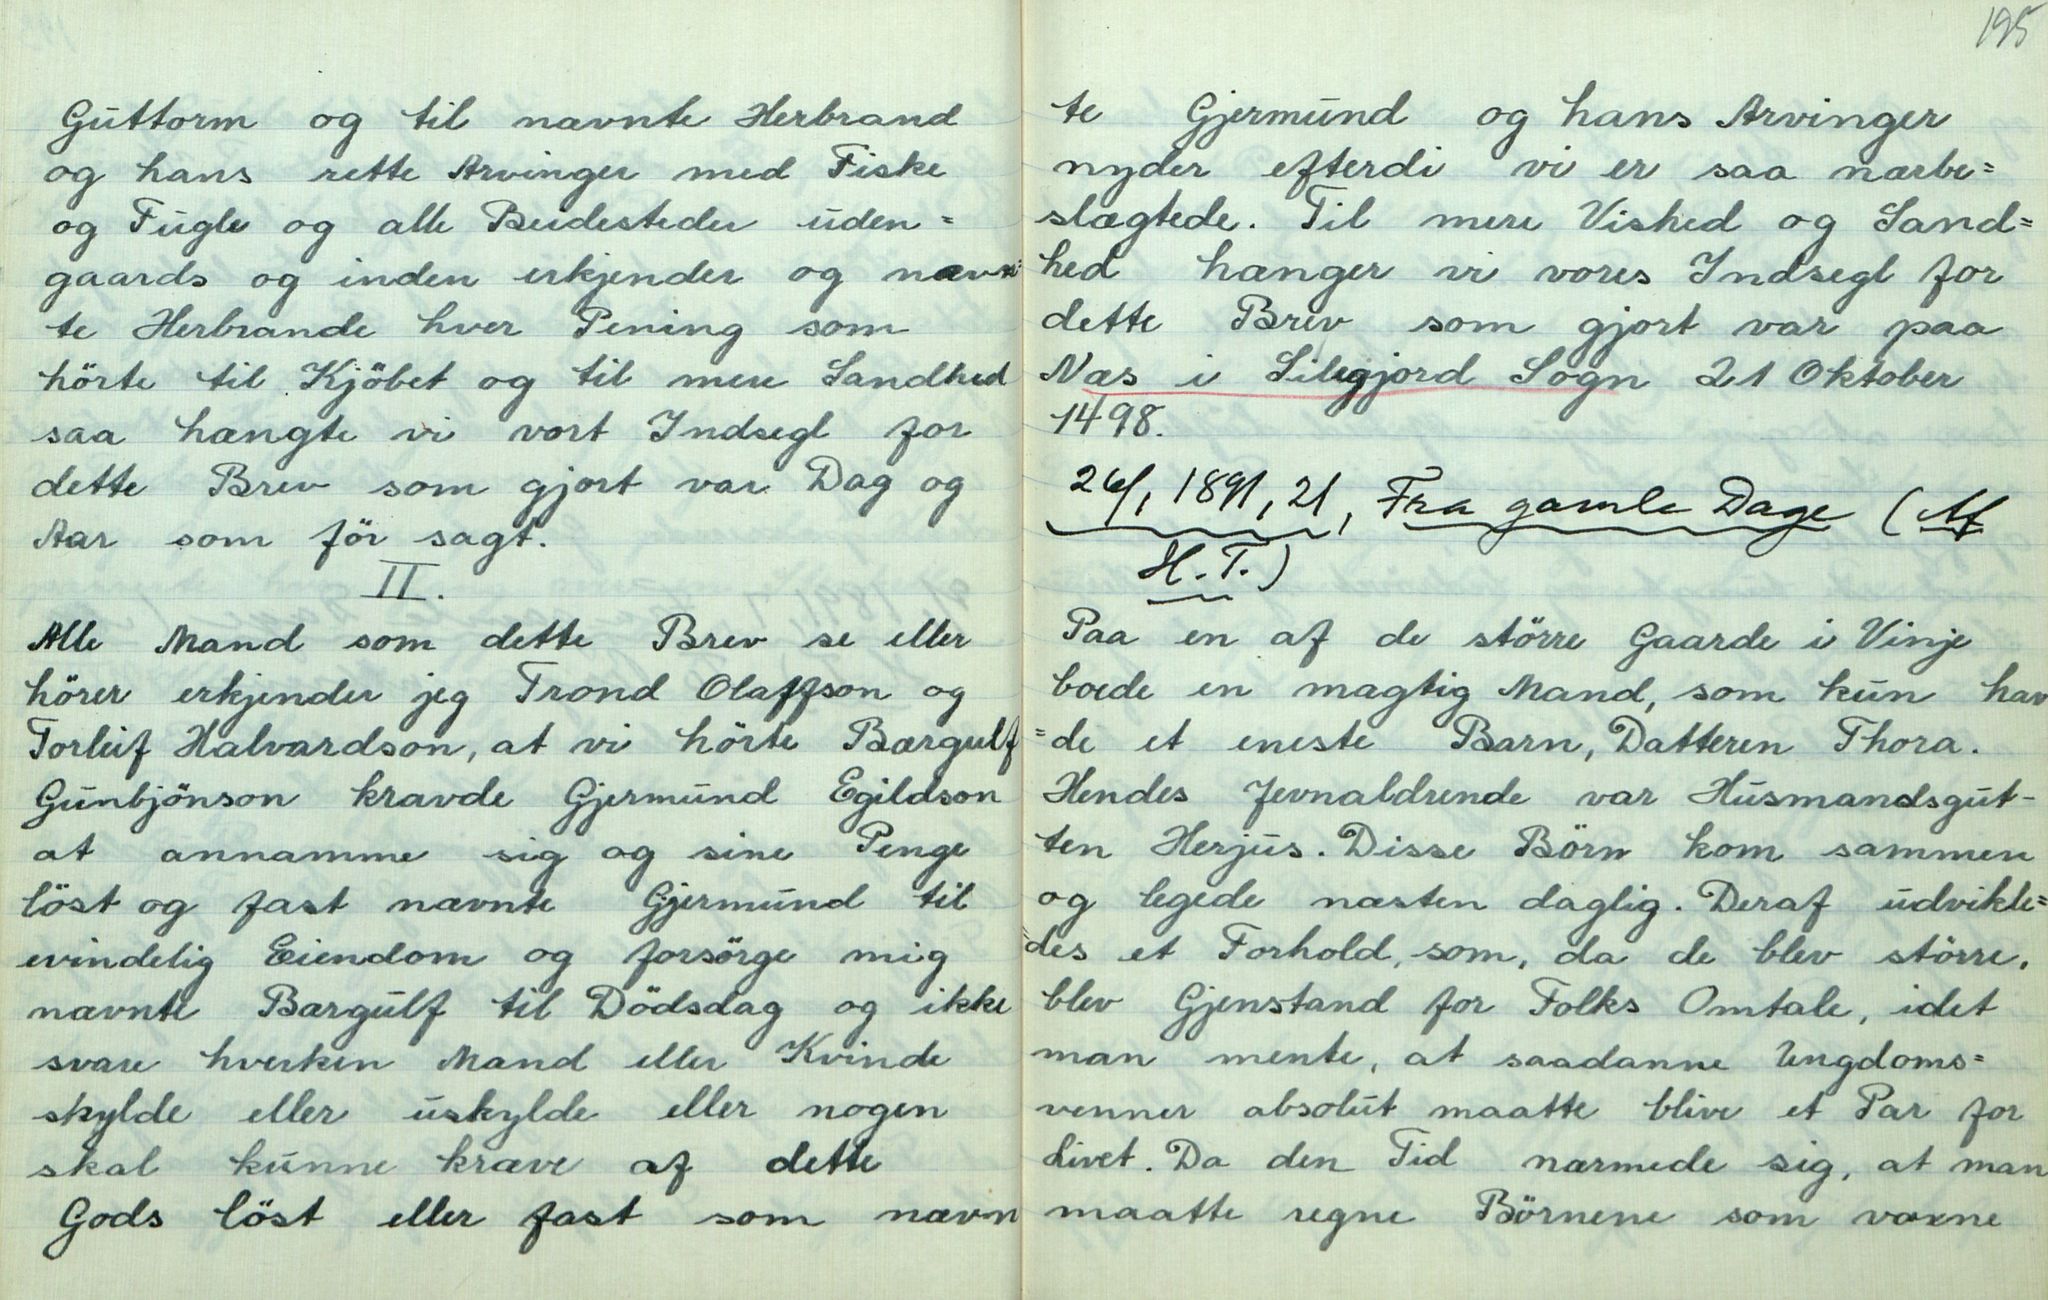 Guttorm og til nævnte Herbrand
og hans rette Arvinger med Fiske
og Fugle og alle Budesteder uden=
gaards og inden erkjender og nævn=
te Herbrande hver Pening som
hörte til Kjöbet og til mere Sandhed
saa hængte vi vort Indsegl for
dette Brev som gjort var Dag og
Aar som för sagt.
II.
Alle Mand som dette Brev se eller
hörer erkjender jeg Trond Olaffson og
Torleif Halvardson, at vi hörte Bærgulf
Gunbjönson kravde Gjermund Egildson
at annamme sig og sine Penge
löst og fast nævnte Gjermund til
evindelig Eiendom og forsörge mig
nævnte Bærgulf til Dödsdag og ikke
svare hverken Mand eller Kvinde
skylde eller uskylde eller nogen
skal kunne kræve af dette
Gods löst eller fast som nævn
195
te Gjermund og hans Arvinger
nyder efterdi vi er saa nærbe=
slægtede. Til mere Vished og Sand=
hed hænger vi vores Indsegl for
dette Brev som gjort var paa
Næs i Silegjord Sogn 21 Oktober
1498.
1891, 21, Fra gamle Dage (Af
H. T.)
Paa en af de större Gaarde i Vinje
boede en mægtig Mand, som kun hav
=de et eneste Barn, Datteren Thora.
Hendes Jevnaldrende var Husmandsgut-
ten Herjus. Disse Börn kom sammen
og legede næsten daglig. Deraf udvikle=
=des et Forhold, som, da de blev större,
blev Gjenstand for Folks Omtale, idet
man mente, at saadanne Ungdoms=
venner absolut maatte blive et Par for
Livet. Da den Tid nærmede sig, at man
maatte regne Börnene som voxne